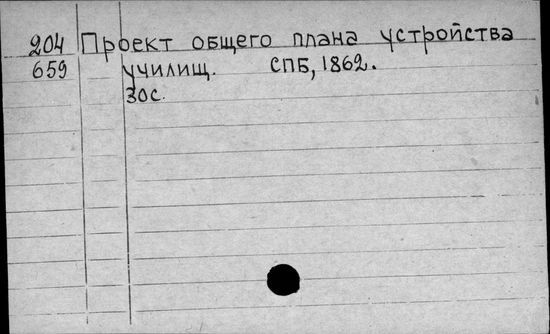 204 Проект общего плана устройства
659 училищ. СПБ, 1862.
30с.